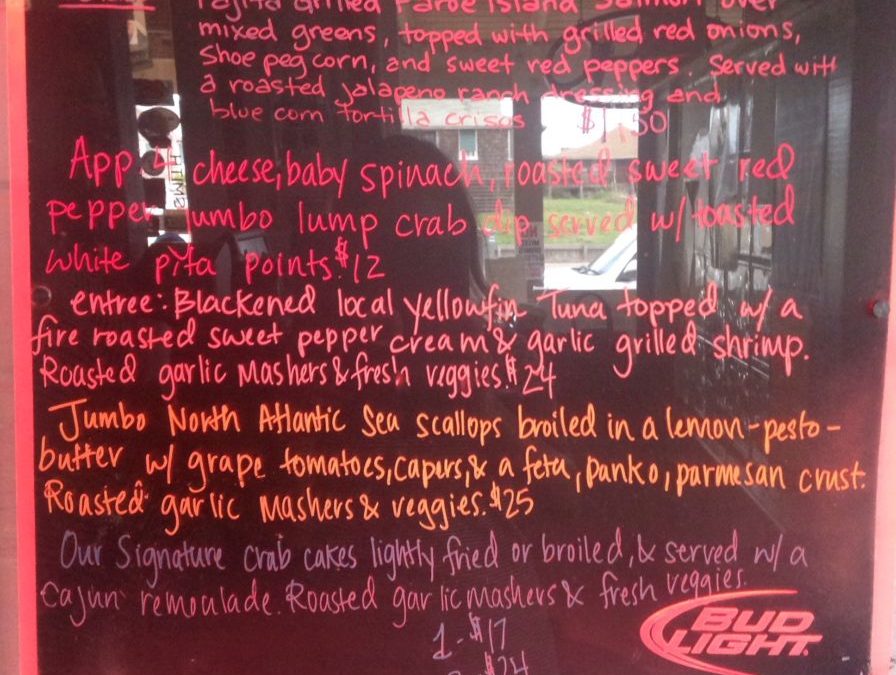 Fajita Grilled Faroe Island Salmon over
mixed greens, topped with grilled red onions,
Shoe peg corn, and sweet red peppers. Served with
a roasted jalapeno ranch dressing and
blue corn tortilla crisps
App 4 cheese, baby spinach, roasted sweet red
pepper jumbo lump crab dip served w/ toasted
white pita points. $12
entree: Blackened local yellowfin Tuna topped w/ a
fire roasted sweet pepper cream & garlic grilled shrimp.
Roasted garlic Mashers & fresh veggies. $24
Jumbo North Atlantic Sea scallops broiled in a lemon-pesto-
butter w/ grape tomatoes, capers, & a feta, panko, parmesan crust.
Roasted garlic Mashers & veggies. $25
Our Signature crab cakes lightly fried or broiled, & served w/ a
Cajun remoulade. Roasted garlic mashers & fresh veggies.
1 - $17
$24
BUD
LIGHT